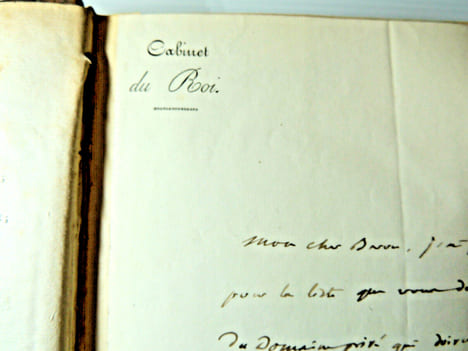 Cabinet
du Roi.
mon cher Baron, j'ai
pour la liste que vous
du Domaine privé qui